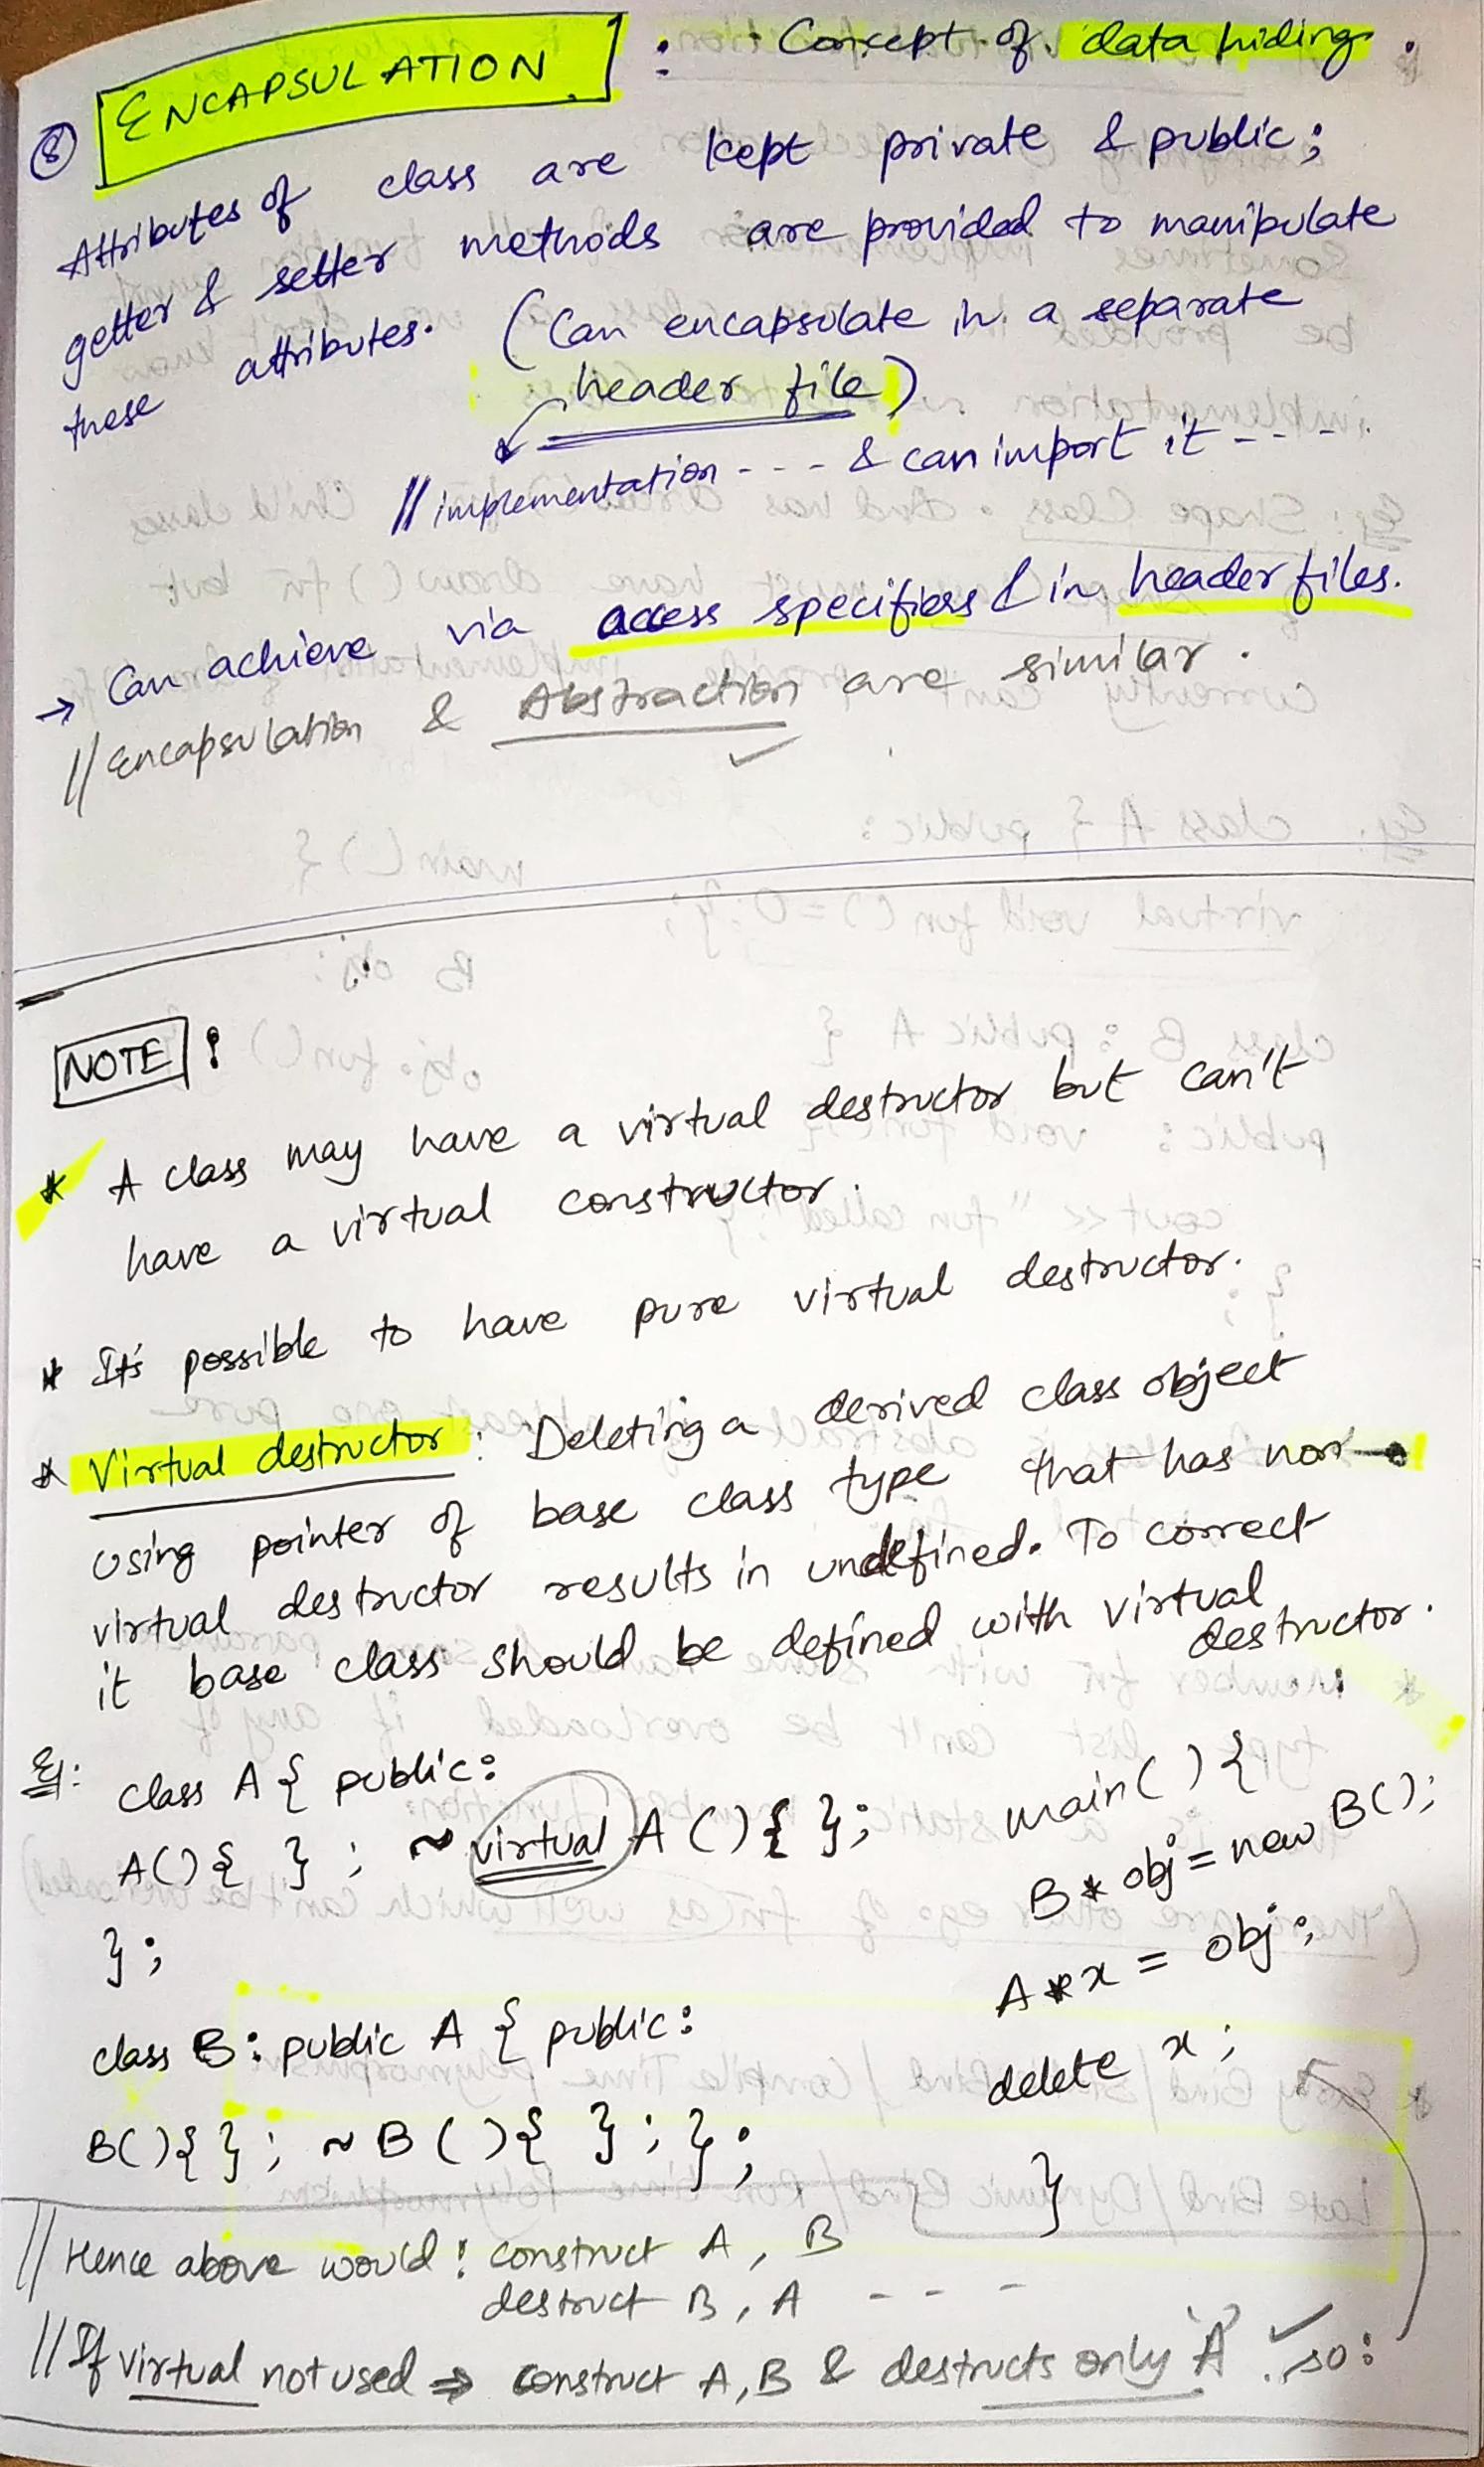 ⑧ ENCAPSULATION : Concept of data hiding.
Attributes of class are kept private & public;
getter & setter methods are provided to manipulate
these attributes. (Can encapsulate in a separate
header file)
// implementation - - - & can import it - - - -
→ Can achieve via access specifiers & in header files.
// Encapsulation & Abstraction are similar.
NOTE :
* A class may have a virtual destructor but can't
have a virtual constructor.
* It's possible to have pure virtual destructor.
* Virtual destructor : Deleting a derived class object
using pointer of base class type that has non →
virtual destructor results in undefined. To correct
it base class should be defined with virtual
destructor.
Eg: class A { public:
A(){ } ; ~ virtual A () { };
};
class B : public A { public:
B(){ }; ~ B () { } ; };
main( ) {
B * obj = new B();
A * x = obj ;
delete x ;
}
// Hence above would : construct A, B
destruct B, A - - -
// If virtual not used ⇒ construct A, B & destructs only 'A' ✓. so: